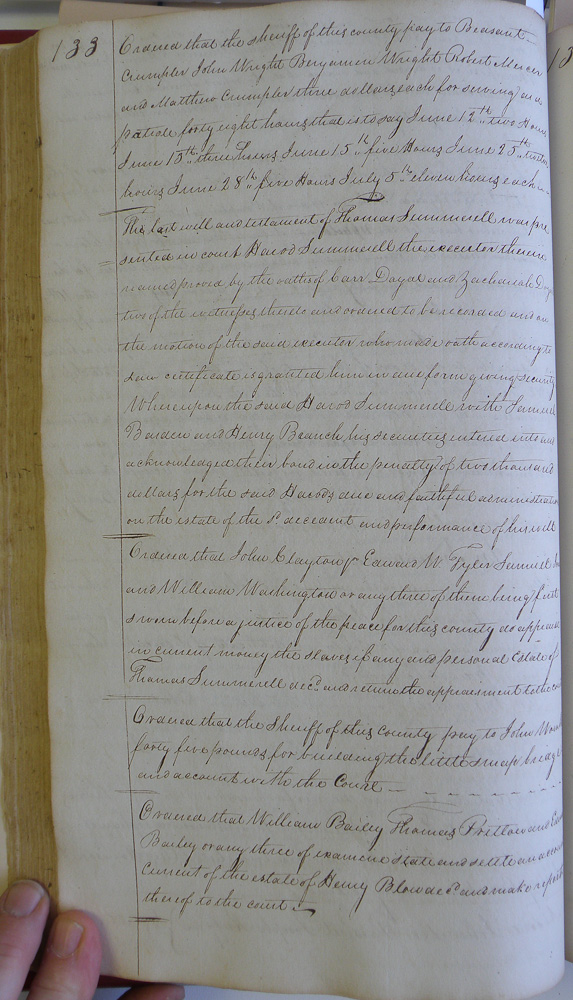 133
Ordered that the sheriff of this county pay to Beasant
Crumpler John Wright Benjamin Wright Robert Mercer
and Matthew Crumpler three dollars each for serving as a
patrole forty eight hours that is to say June 12th two Hours
June 13th three Hours June 15th five Hours June 25th
hours June 28th five Hours July 5th eleven hours each
The last will and testament of Thomas Summerell was pre
sented in court Harod Summerell the executor therein
named proved by the oaths of Carr and Zachariah
two of the witnesses thereto and ordered to be recorded and on
the motion of the said executor who made oath according to
law certificate is granted him in due form giving security
Whereupon the said Harod Summerell with Samuel
Barden and Henry Branch his securities entered into and
acknowledged their bond in the penalty of two thousand
dollars for the said Harods due and faithful administration
on the estate of the sd. decedent and performance of his will
Ordered that John Clayton Edward W. Tyler Samuel
and William Washington or any three of them being first
sworn before a justice of the peace for this county do appraise
in current money the slaves if any and personal Estate of
Thomas Summerell decd. and return the appraisment to the co
Ordered that the Sheriff of this County pay to John
forty five pounds for building the little swap bridge
and account with the Court
Ordered that William Bailey Thomas Pretlow and
Bailey or any three of examine state and settle an account
Current of the estate of Henry Blow decd. and make report
thereof to the court
13